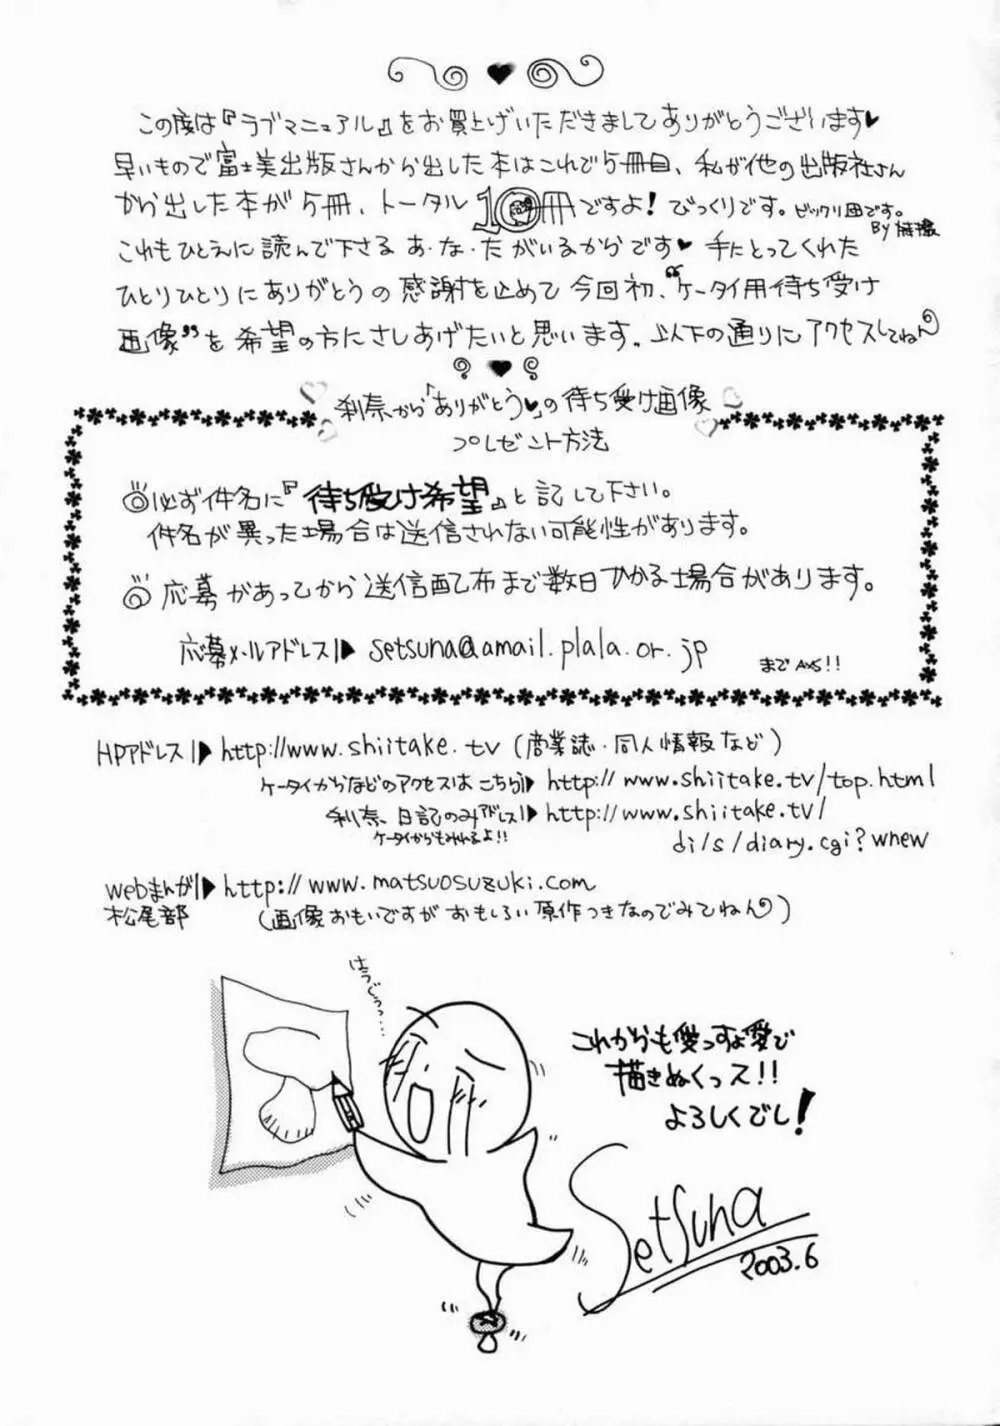 この度は『ラブマニュアル』をお買上げいただきましてありがとうございます♥
早いもので富士美出版さんから出した本はこれで5冊目、私が他の出版社さん
から出した本が5冊、トータル10冊ですよ！びっくりです。ビックリ団です。
By
これもひとえに読んで下さるあ・な・たがいるからです♥手にとってくれた
ひとりひとりにありがとうの感謝を止めて今回初、“ケータイ用待ち受け
画像”を希望の方にさしあげたいと思います。以下の通りにアクセスしてねん
刹奈から「ありがとう♥」の待ち受け画像
プレゼント方法
◎必ず件名に『待ち受け希望』と記して下さい。
件名が異った場合は送信されない可能性があります。
◎応募があってから送信配布まで数日かかる場合があります。
応募メールアドレス▶setsuna@amail.plala.or.jp
まで
HPアドレス▶http://www.shiitake.tv（商業誌・同人情報など）
ケータイからなどのアクセスはこちら▶http://www.shiitake.tv/top.html
刹奈、日記のみアドレス▶http://www.shiitake.tv/
ケータイからもみれるよ!!
di/s/diary.cgi?wnew
webまんが▶http://www.matsuosuzuki.com
松尾部
（画像おもいですがおもしろい原作つきなのでみてねん）
はうじうっ…
これからも愛っすよ愛で
描きぬくっス!!
よろしくでし!
Setsuna
2003.6